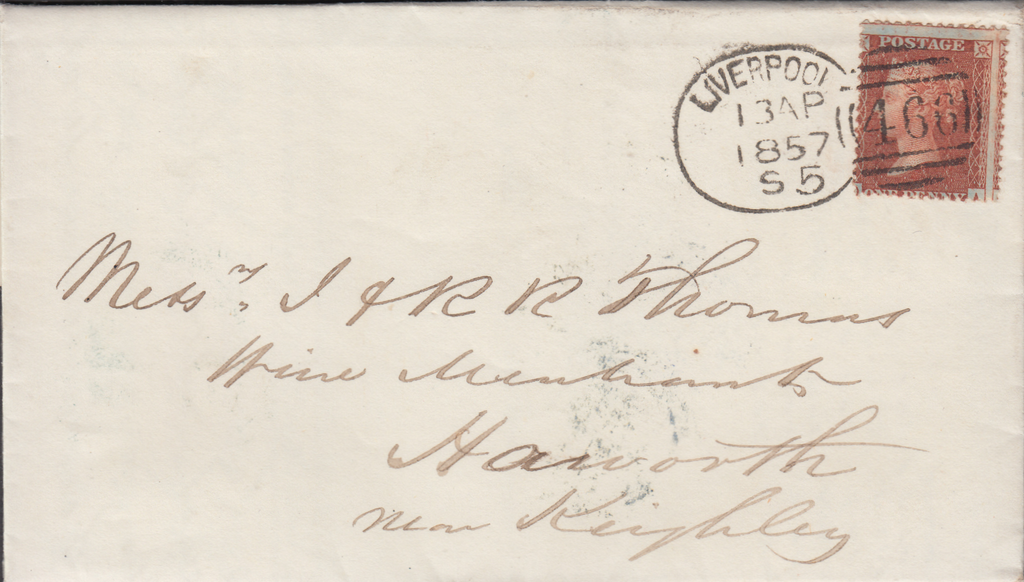 POSTAGE
LIVERPOOL
13 AP
1857
S 5
466
ONE PENNY A
Messrs. J & R R Thomas
Wine Merchants
Haworth
near Keighley